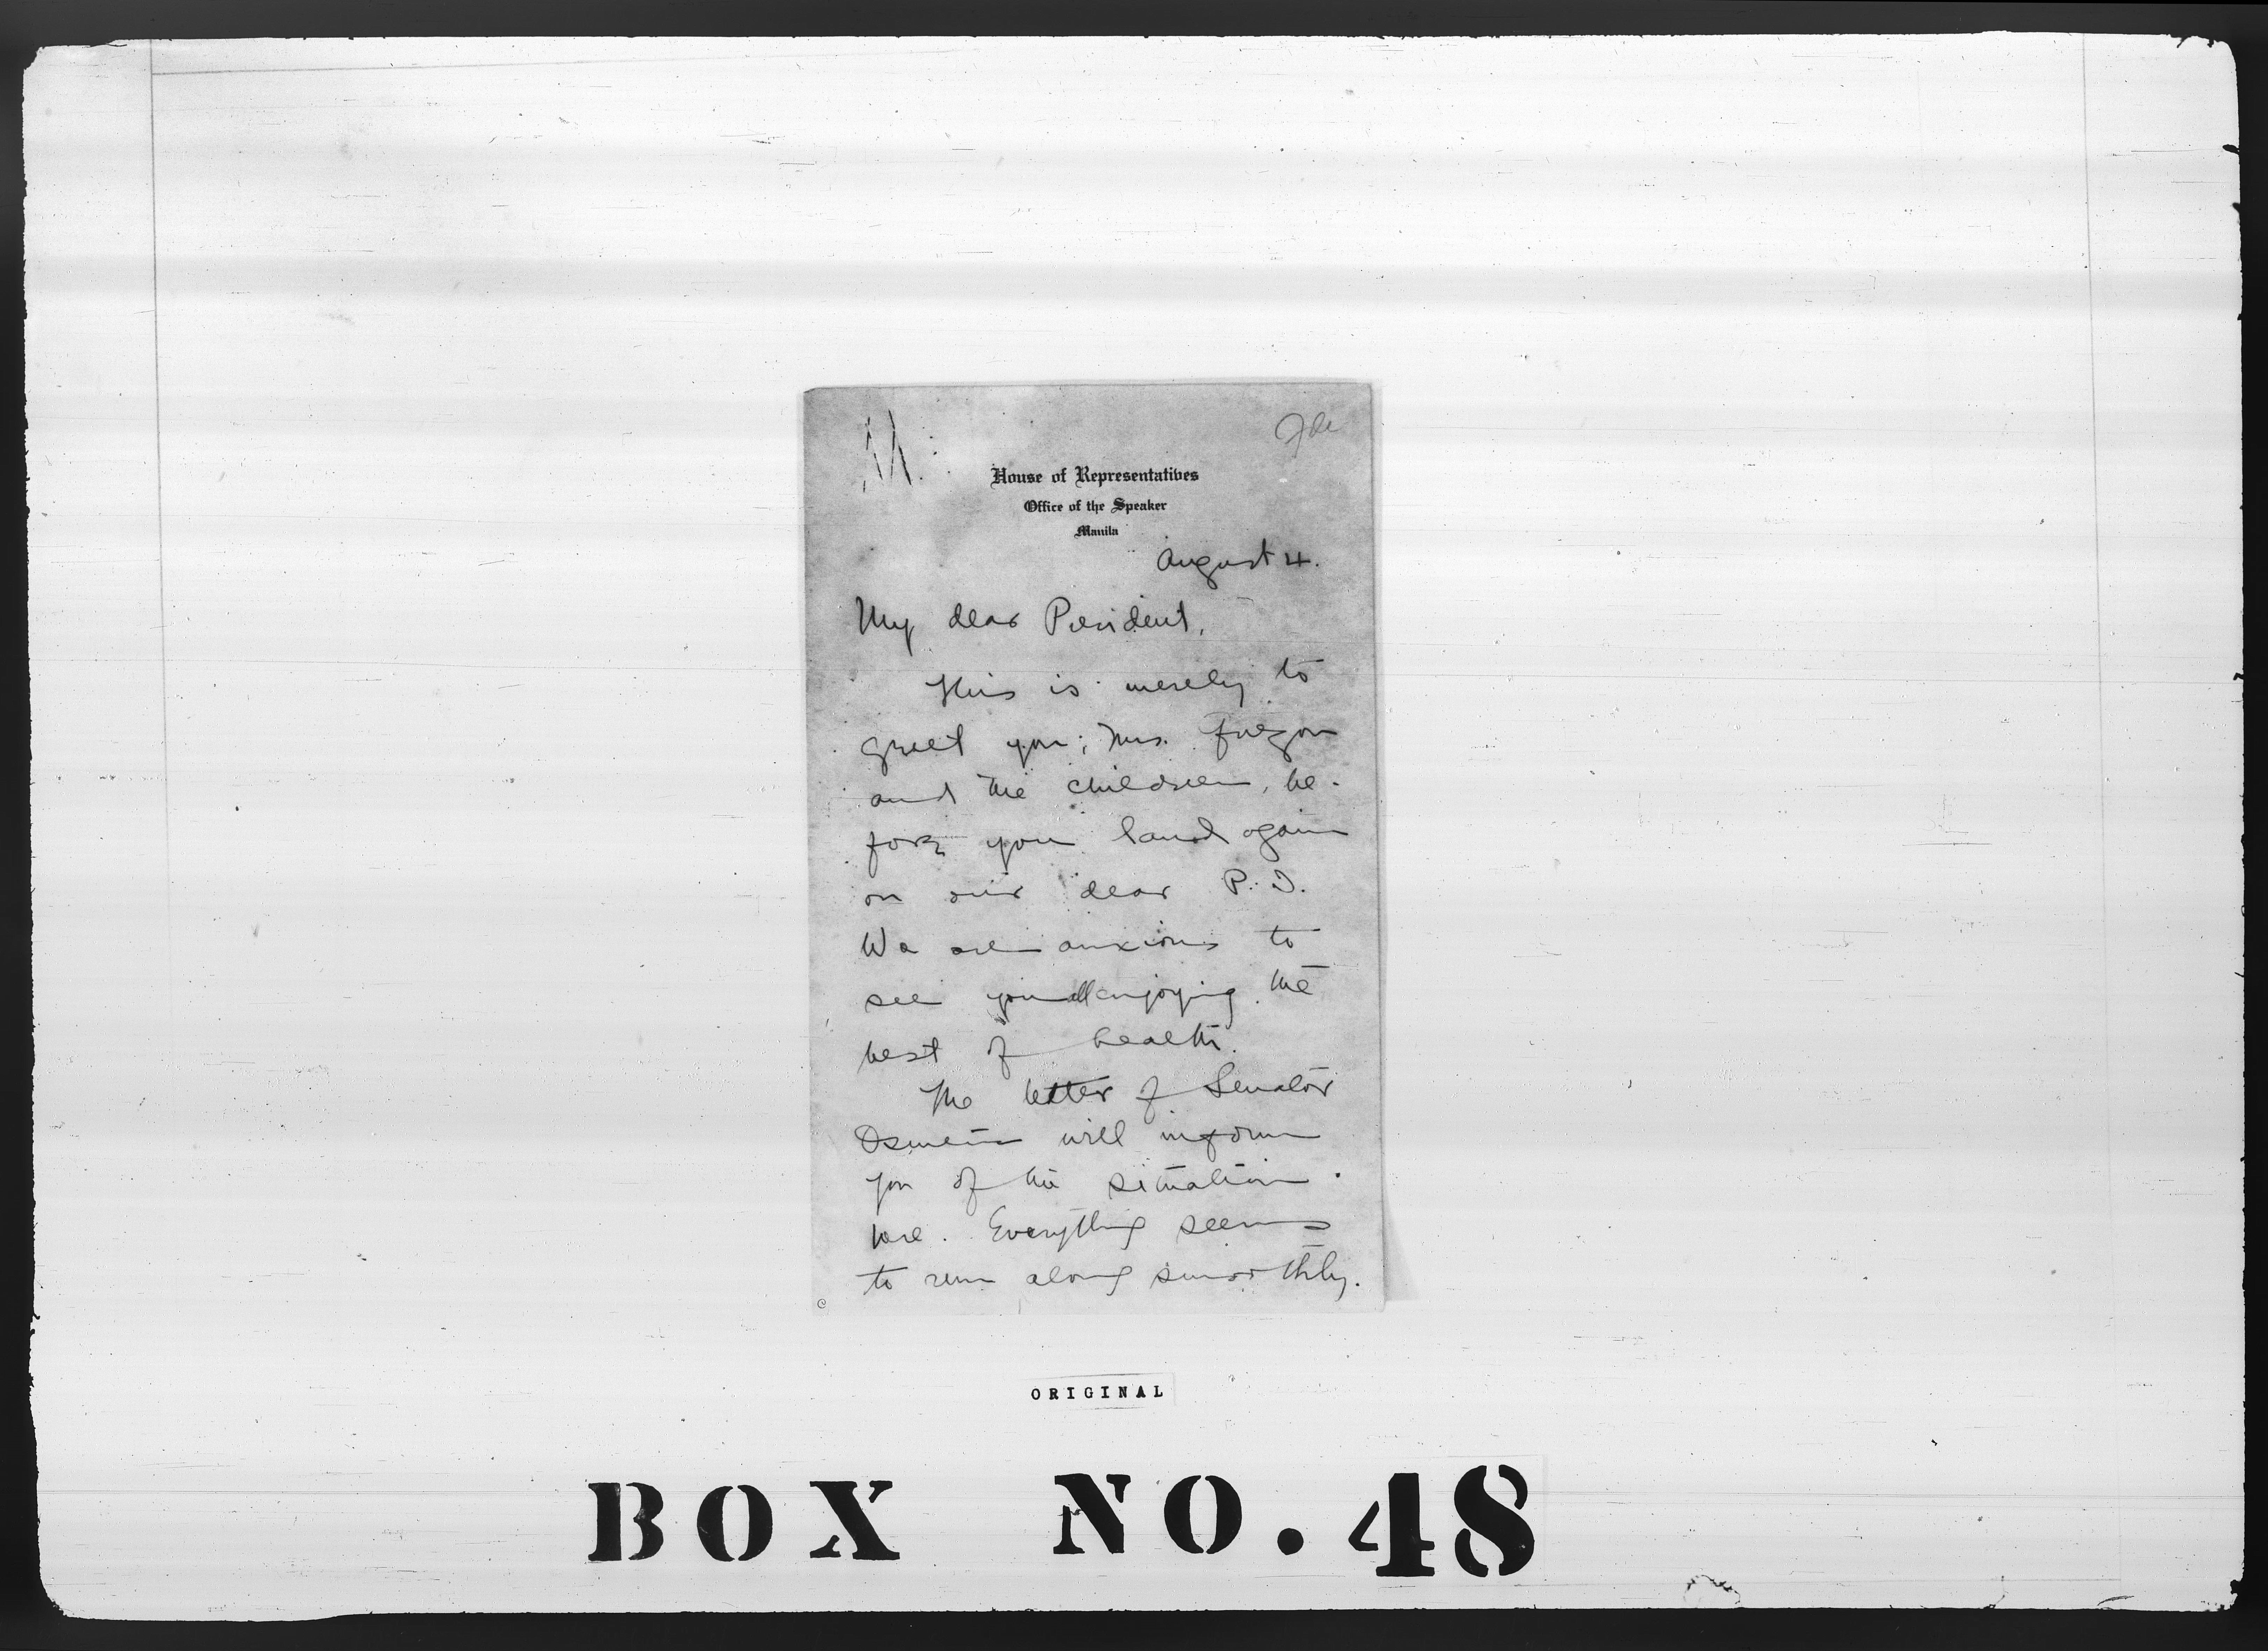 House of Representatives
Office of the Speaker
Manila
August 4.
My dear President,
This is merely to
greet you, Mrs. Quezon
and the children, be-
fore you land again
on our dear P. I.
We are anxious to
see you all enjoying the
best of health.
The letter of Senator
Osmeña will inform
you of the situation
here. Everything seems
to run along smoothly.
C
ORIGINAL
BOX NO. 48